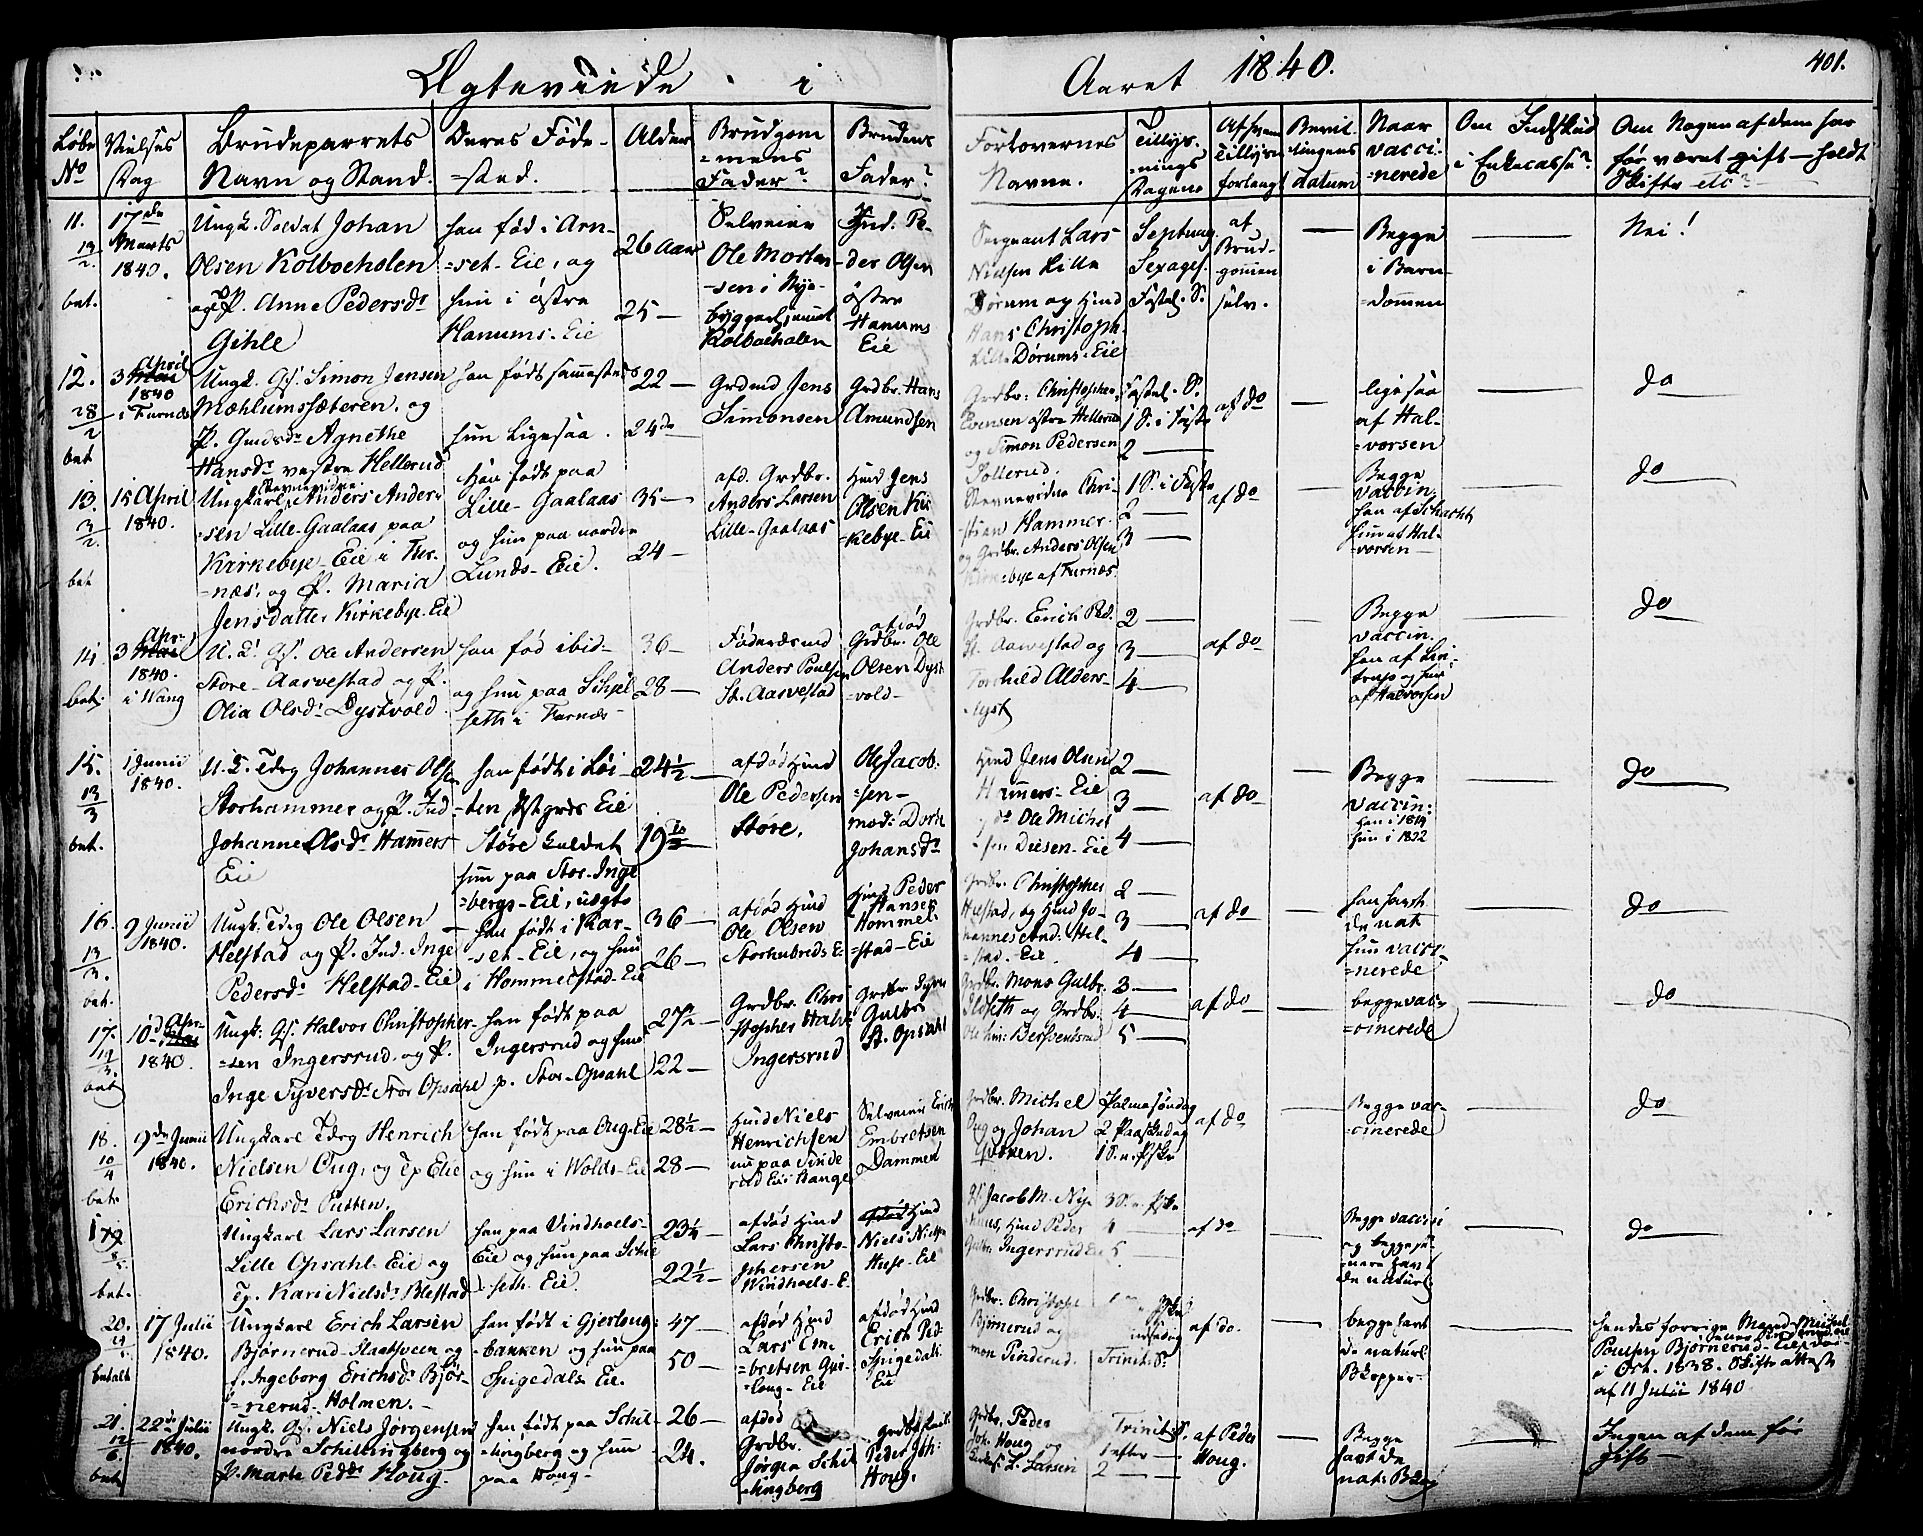 Ægteviede i Aaret 1840.
401.
Løbe No
Vielses Dag
Brudeparrets Navn og Stand.
Deres Føde=sted.
Alder
Brudgom=mens Fader?
Brudens Fader?
Forlovernes Navne.
Tillys=nings Dagene
Af hvem Tillysn. forlangt
Bevil=lingens Datum
Naar vacci=nerede
Om Indskud i Enkecasse?
Om Nogen af dem har før været gift – holdt Skifte etc?
11.
17de Marts 1840.
bet.
Ungk. Soldat Johan
Olsen Kolboeholen
og P. Anne Pedersdr
Gihle
han fød i Arn=
set-Eie, og
hun i østre
Hanums-Eie
26 Aar
25 –
Selveier
Ole Morten=
sen i
Kolboeholen
Ind. Pe=
der Olsen
østre
Hanums
Eie
Sergeant Lars
Nielsen Lille
Dørum og Hmd
Hans Christoph.
Lille Dørums-Eie
Septuag.
Sexages.
Fastel. S.
af
Brud=
gommen
selv.
Begge
i Barn=
dommen
Nei!
12.
3 April
1840
i Furnæs
28/2
bet
Ungk. Gs. Simon Jensen
Mæhlumssæteren, og
P. Gmdsdr Agnethe
Hansdr vestre Hellerud
han født sammesteds
hun ligesaa.
22 –
24 do
Grdmd Jens
Simonsen
Grdbr. Hans
Amundsen
Grdbr. Christopher
Evensen østre Hellerud
og Simon Pedersen
Tollerud.
Fastel. S.
1 S. i Faste
2 –
af do
ligesaa
af Hal=
vorsen
do
13.
15 April
1840.
3/2
bet
Ungkarl Anders Ander=
sen Lille-Gaalaas paa
Kirkebye-Eie i Fur=
næs, og P. Maria
Jensdatter Kirkebye-Eie
Han født paa
Lille-Gaalaas
og hun paa nordre
Lunds-Eie.
35 –
24 –
afd. Grdbr.
Anders Larsen
Lille-Gaalaas
Hmd Jens
Olsen Kir=
kebye-Eie
Stevnevidne Chri=
stian Hammer.
og Grdbr. Anders Olsen
Kirkebye af Furnæs
1 S. i Faste
2 –
3 –
af do
Begge
vaccin.
han af Schacht
hun af Hal=
vorsen –
do
14
3 Apr.
1840.
i Vang
bet:
U.K. Gs. Ole Andersen
Store-Aarvestad og P.
Olia Olsdr Dystvold
han fød ibid=
og hun paa Schjel=
seth i Furnæs
36 –
28 –
Føderaadsmd
Anders Poulsen
St. Aarvestad
afdød
Grdbr. Ole
Olsen Dyst=
vold –
Grdbr. Erich Ped.
St. Aarvestad og
2 –
3 –
4 –
af do
Begge
vaccin.
af Halvorsen
do
15.
1 Junii
1840.
13/3
bet.
U.K. Tdrg Johannes Olsen
Storhammer og P. Ind.
Johanne Olsdr Hammers
Eie
han født i Løi=
ten Eie
Støre kaldet
hun paa Stor-Inge
bergs-Eie,
24½ –
afdød Hmd
Ole Pedersen
Støre.
Ole Jacob=
sen –
Johansdr
Hmd Jens Olsen
Hammers-Eie
Ole Michel
sen Diesen-Eie
2 –
3 –
4 –
af do
Begge
vaccin:
han i 1819
hun i 1822
do
16.
9 Junii
1840.
13/3.
bet.
Ungk. Tdrg Ole Olsen
Helstad og P. Ind. Inge
Pedersdr Helstad-Eie
han født i Kaar=
set-Eie, og hun
i Hommelstad-Eie
36 –
26 –
afdød Hmd
Ole Olsen
Storhubreds-E.
Hmd Peder
Hansen
Hommel=
stad-Eie
Grdbr. Christopher
Helstad, og Hmd Jo=
hannes And. Hel=
stad-Eie.
2 –
3 –
4 –
af do
han havt
de nat.
hun vacci=
nerede
do
17.
10d Apr.
1840.
bet
Ungk. Gs. Halvor Christopher=
sen Ingersrud, og P.
Inge Syversdr Stor Opsahl
han født paa
Ingersrud og hun
p. Stor-Opsahl
27½ –
22 –
Grdbr. Chri=
stopher Halv.
Ingersrud
Grdbr. Syver
Gulbr.
St. Opsahl
Grdbr. Mons Gulbr.
Eldseth og Grdbr.
3 –
4 –
5 –
af do
begge vac=
cinerede
do
18.
9de Junii
1840.
10/4
bet.
Ungkarl Tdrg Henrich
Nielsen Oug, og Tp Elie
Erichsdr Putten.
han født paa Oug-Eie
og hun i Wolds-Eie
28½ –
28 –
Hmd Niels
Henrichsen
nu paa Tinde
rud Eie i Vange
Selveier Erich
Embretsen
Dammen
Grdbr. Michel
Oug og Johan
Palmesøndag
2 Paaskedag
1 S. e. Pske
af do
Begge vac=
cinerede
do
19
8/5.
bet.
Ungkarl Lars Larsen
Lille Opsahl-Eie og
Tp. Kari Nielsdr Blestad
han paa Vindhoels-
Eie og hun paa Schul
seth-Eie.
23¼ –
22½ –
afdød Hmd
Lars Christo=
phersen
Windhoels-E.
Hmd
Niels Nielsen
Huse-Eie
Gs. Jacob M. Nye
huus, Hmd Peder
Gulbr. Ingersrud Eie
3 S. e. Pske
4 –
5 –
af do
Begge vacci
de naturl.
do
20.
17 Julii
1840.
betalt
Ungkarl Erich Larsen
Bjørnerud-Slaatsveen og
f. Ingeborg Erichsdr Bjør=
nerud-Holmen. –
han født i Gjerlaug=
bakken og hun paa
Spigedals-Eie.
47 –
50 –
afdød Hmd
Lars Em=
bretsen Gjer=
loug-Eie
afdød Hmd
Erich Ped.
Spigedals
Eie
Grdbr. Christoph.
Bjørnerud og
mon Tinderud.
Trinit. S.
af do.
begge havt
de naturl.
Bkopper –
hendes forrige Mand Michel
Poulsen Bjørnerud-Eie
i Oct. 1838. Skifte attest
af 11 Julii 1840.
21.
22de Julii
1840.
12/6.
bet.
Ungk. Gs. Niels Jørgensen
nordre Schillingberg og
P. Marte Pedsdr Houg –
han født paa Schil=
lingberg og hun
paa Houg –
26 –
24.
afdød
Grdbr.
Jørgen Schil
lingberg
Peder Joh:
Houg.
Grdbr. Peder
Joh. Houg og
L. Larsen
Trinit. S.
1 efter –
2 –
af Peder
Houg.
Begge
havt de
nat: Bkop
Ingen af dem før
gift –